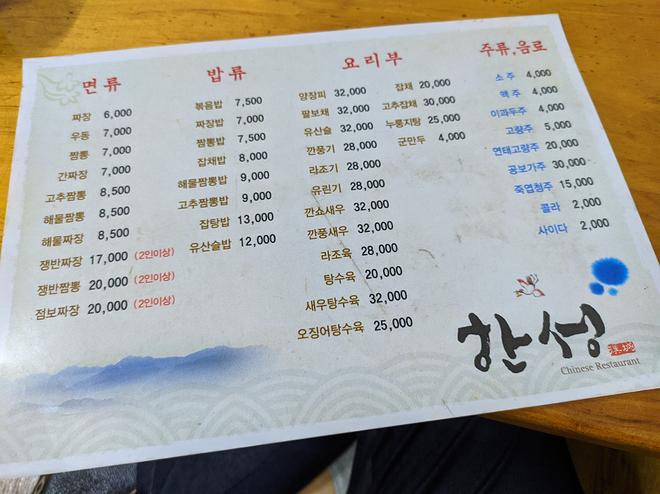 면류
짜장 6,000
우동 7,000
짬뽕 7,000
간짜장 7,000
고추짬뽕 8,500
해물짬뽕 8,500
해물짜장 8,500
쟁반짜장 17,000 (2인이상)
쟁반짬뽕 20,000 (2인이상)
점보짜장 20,000 (2인이상)
밥류
볶음밥 7,500
짜장밥 7,000
짬뽕밥 7,500
잡채밥 8,000
해물짬뽕밥 9,000
고추짬뽕밥 9,000
잡탕밥 13,000
유산슬밥 12,000
요리부
양장피 32,000
팔보채 32,000
유산슬 32,000
깐풍기 28,000
라조기 28,000
유린기 28,000
깐쇼새우 32,000
깐풍새우 32,000
라조육 28,000
탕수육 20,000
새우탕수육 32,000
오징어탕수육 25,000
잡채 20,000
고추잡채 30,000
누룽지탕 25,000
군만두 4,000
주류,음료
소주 4,000
맥주 4,000
이과두주 4,000
고량주 5,000
연태고량주 20,000
공보가주 30,000
죽엽청주 15,000
콜라 2,000
사이다 2,000
한성
Chinese Restaurant